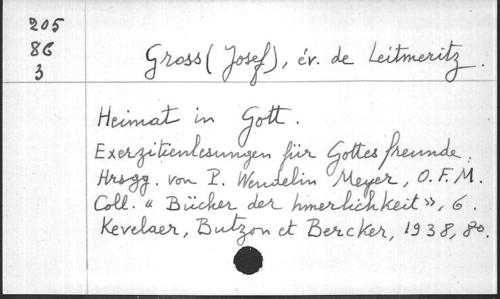 205
86
3
Gross (Josef), év. de Leitmeritz.
Heimat in Gott.
Exerzitienlesungen für Gottes freunde.
Hrsgg. von P. Wendelin Meyer, O.F.M.
Coll. « Bücher der Innerlichkeit », 6.
Kevelaer, Butzon et Bercker, 1938, 80.